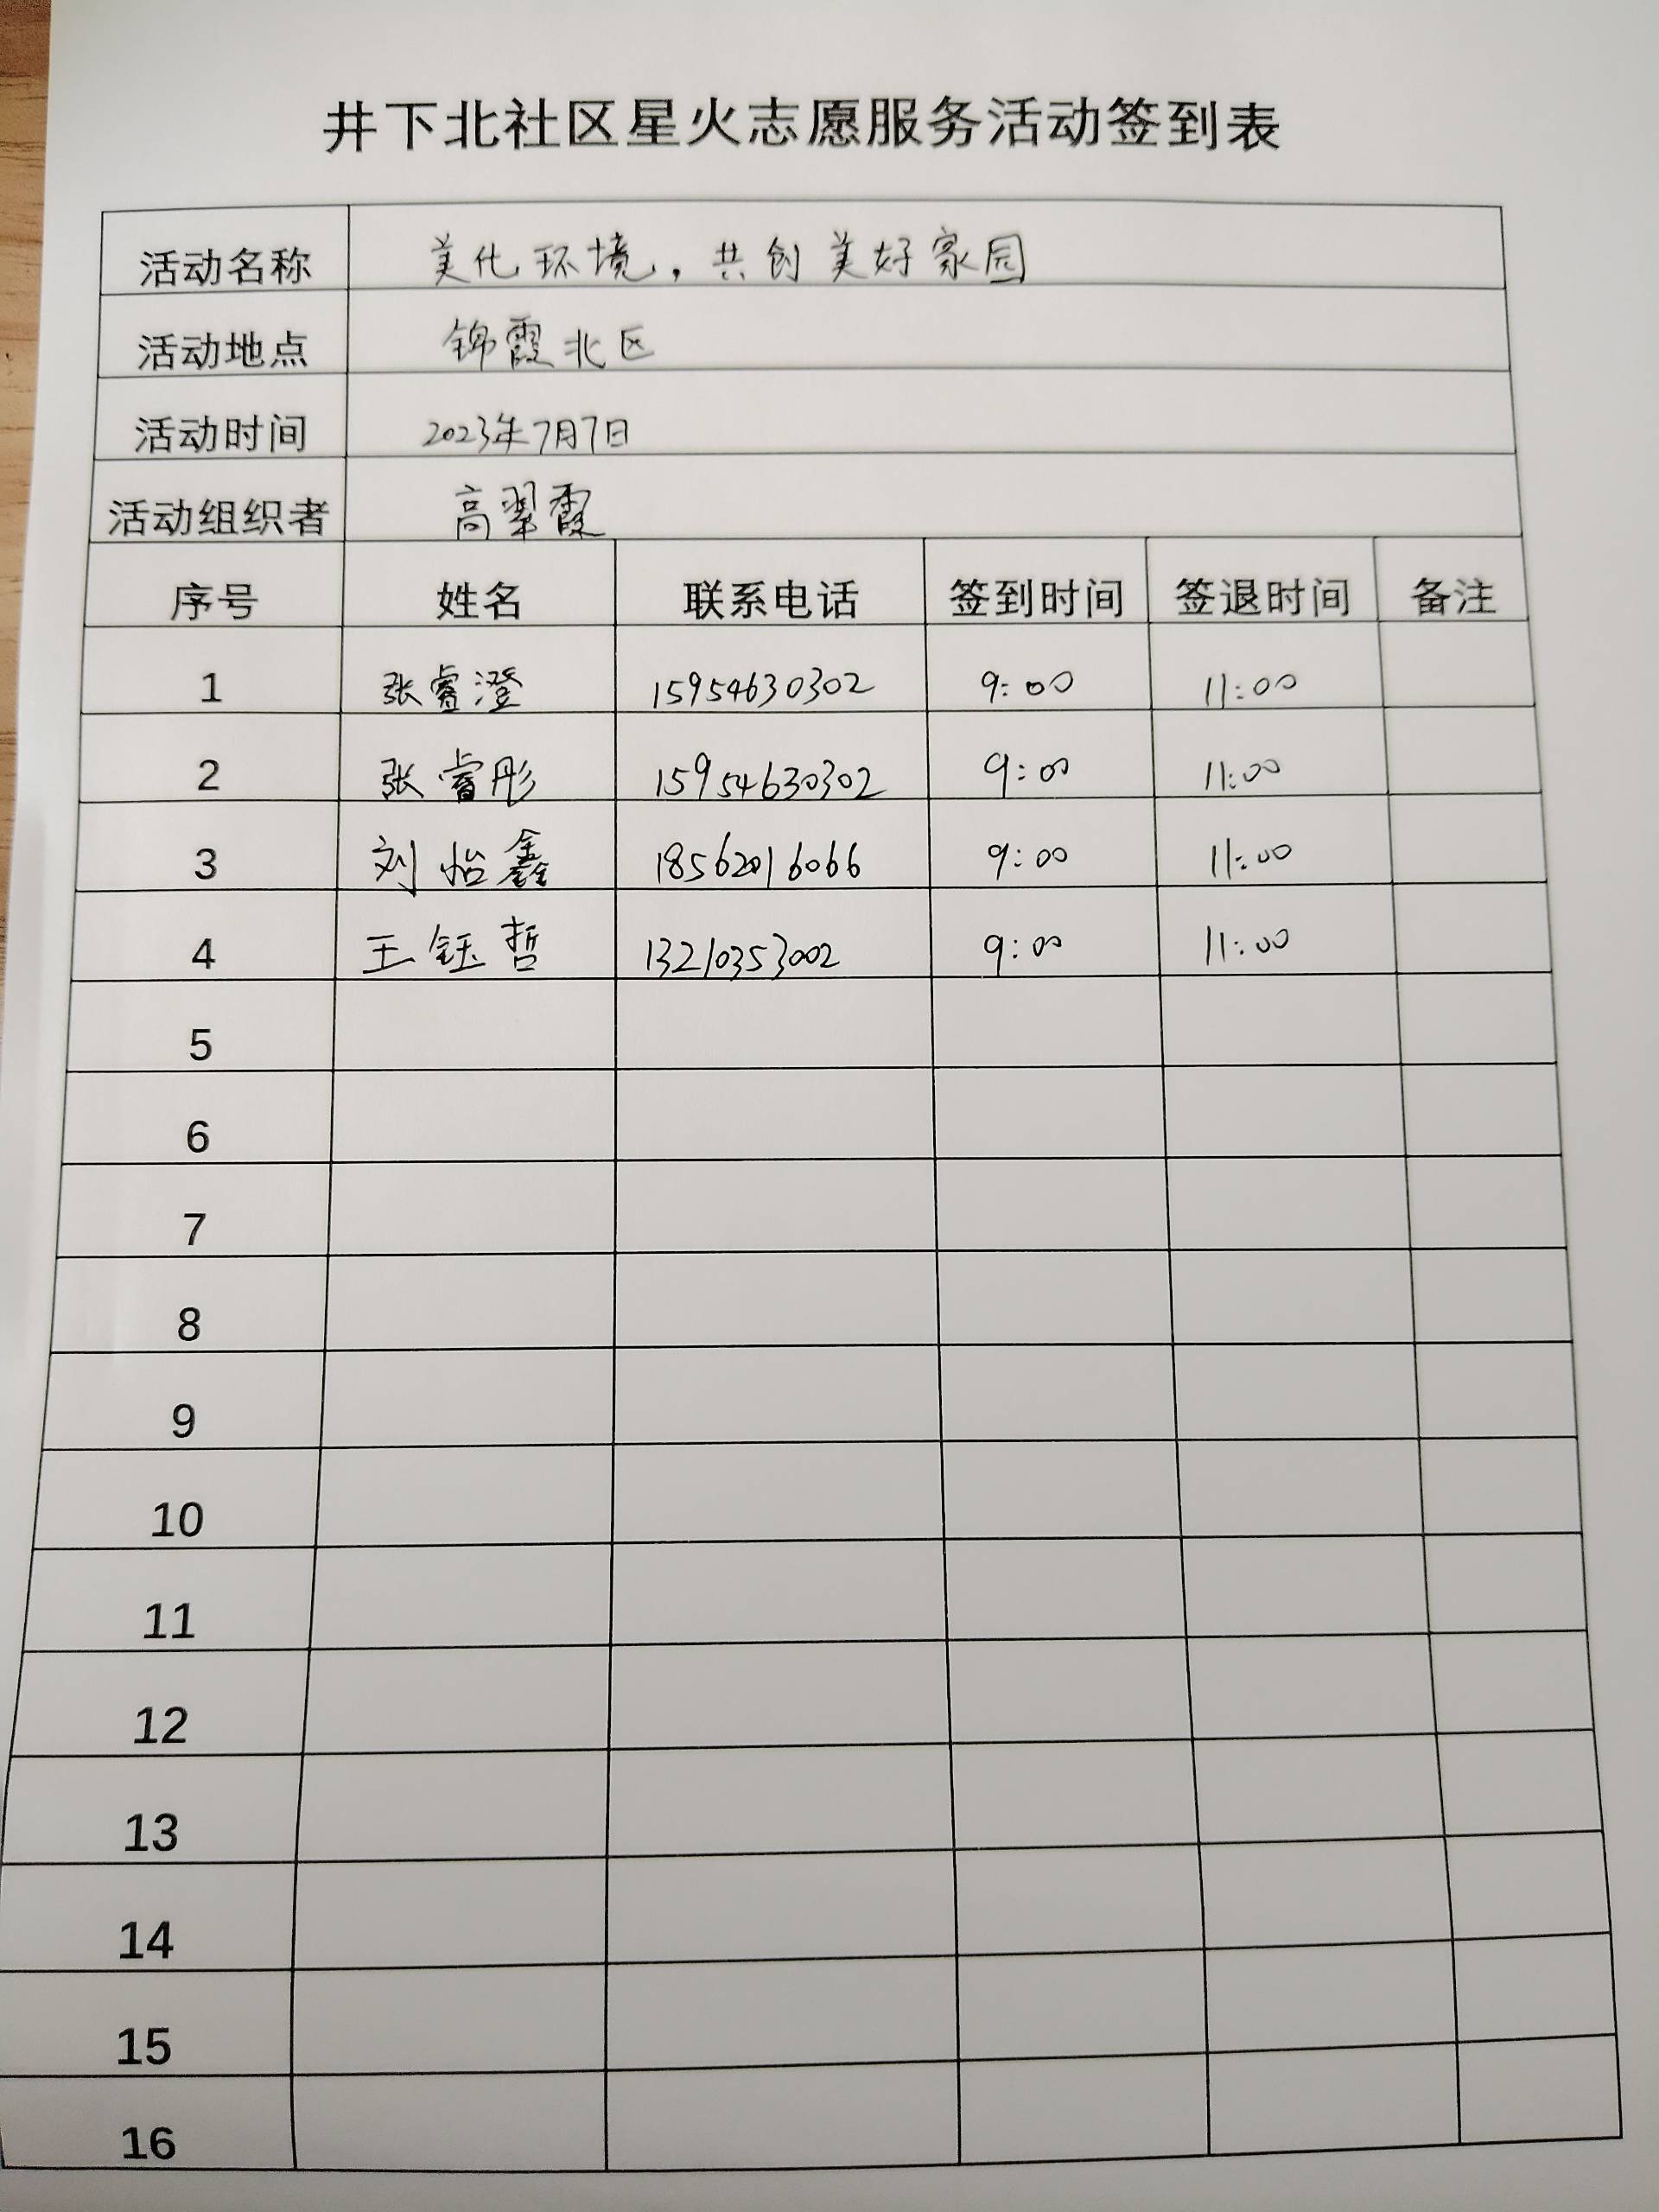 井下北社区星火志愿服务活动签到表
活动名称 美化环境，共创美好家园
活动地点 锦霞北区
活动时间 2023年7月7日
活动组织者 高翠霞
序号 姓名 联系电话 签到时间 签退时间 备注
1 张睿澄 15954630302 9:00 11:00
2 张睿彤 15954630302 9:00 11:00
3 刘怡鑫 18562016066 9:00 11:00
4 王钰哲 13210353002 9:00 11:00
5
6
7
8
9
10
11
12
13
14
15
16